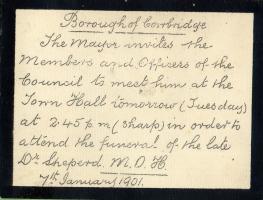 Borough of Corbridge
The Mayor invites the
Members and Officers of the
Council to meet him at the
Town Hall tomorrow (Tuesday)
at 2.45 p.m (sharp) in order to
attend the funeral of the late
Dr. Sheperd. M.O.H.
7th January 1901.